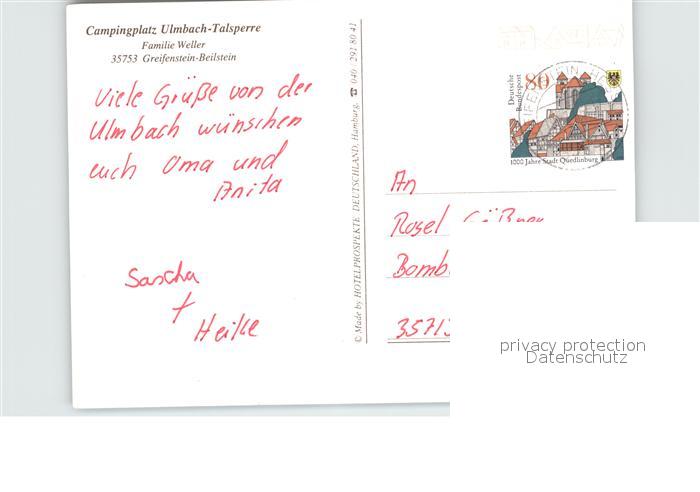 Campingplatz Ulmbach-Talsperre
Familie Weller
35753 Greifenstein-Beilstein
Viele Grüße von der
Ulmbach wünschen
euch Oma und
Anita
Sascha
+
Heike
© Made by HOTELPROSPEKTE DEUTSCHLAND, Hamburg, ☎ 040 / 291 80 41
Deutsche
Bundespost
80
1000 Jahre Stadt Quedlinburg
An
Rosel
35713
privacy protection
Datenschutz